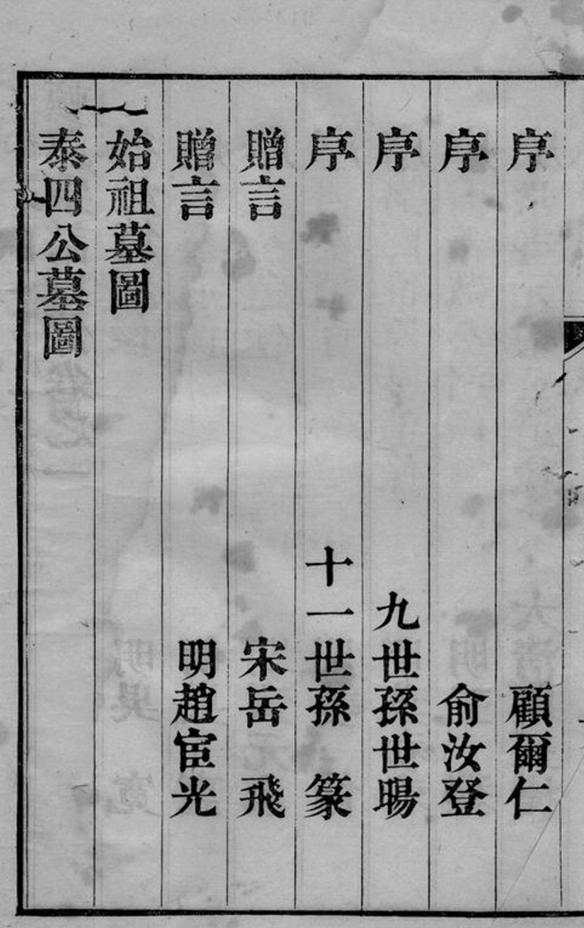 序 顧爾仁
序 俞汝登
序 九世孫世暘
序 十一世孫 篆
贈言 宋岳 飛
贈言 明趙宧光
始祖墓圖
泰四公墓圖